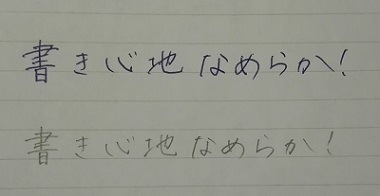 書き心地なめらか!
書き心地なめらか!